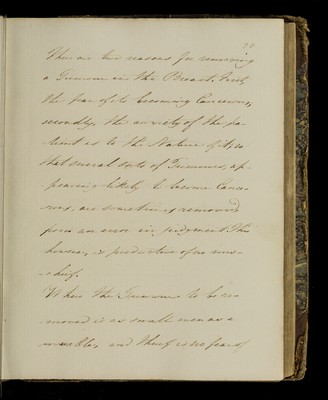 There are two reasons for removing
a Tumour in the Breast. First,
the fear of its becoming Cancerous,
secondly, the anxiety of the pa-
tient as to the Nature of it; so
that several sorts of Tumours, ap-
pearing likely to become Cance-
rous, are sometimes removed
from an error in judgment. This
however, is productive of no mis-
chief.
When the Tumour to be re-
moved is as small even as a
marble, and there is no fear of